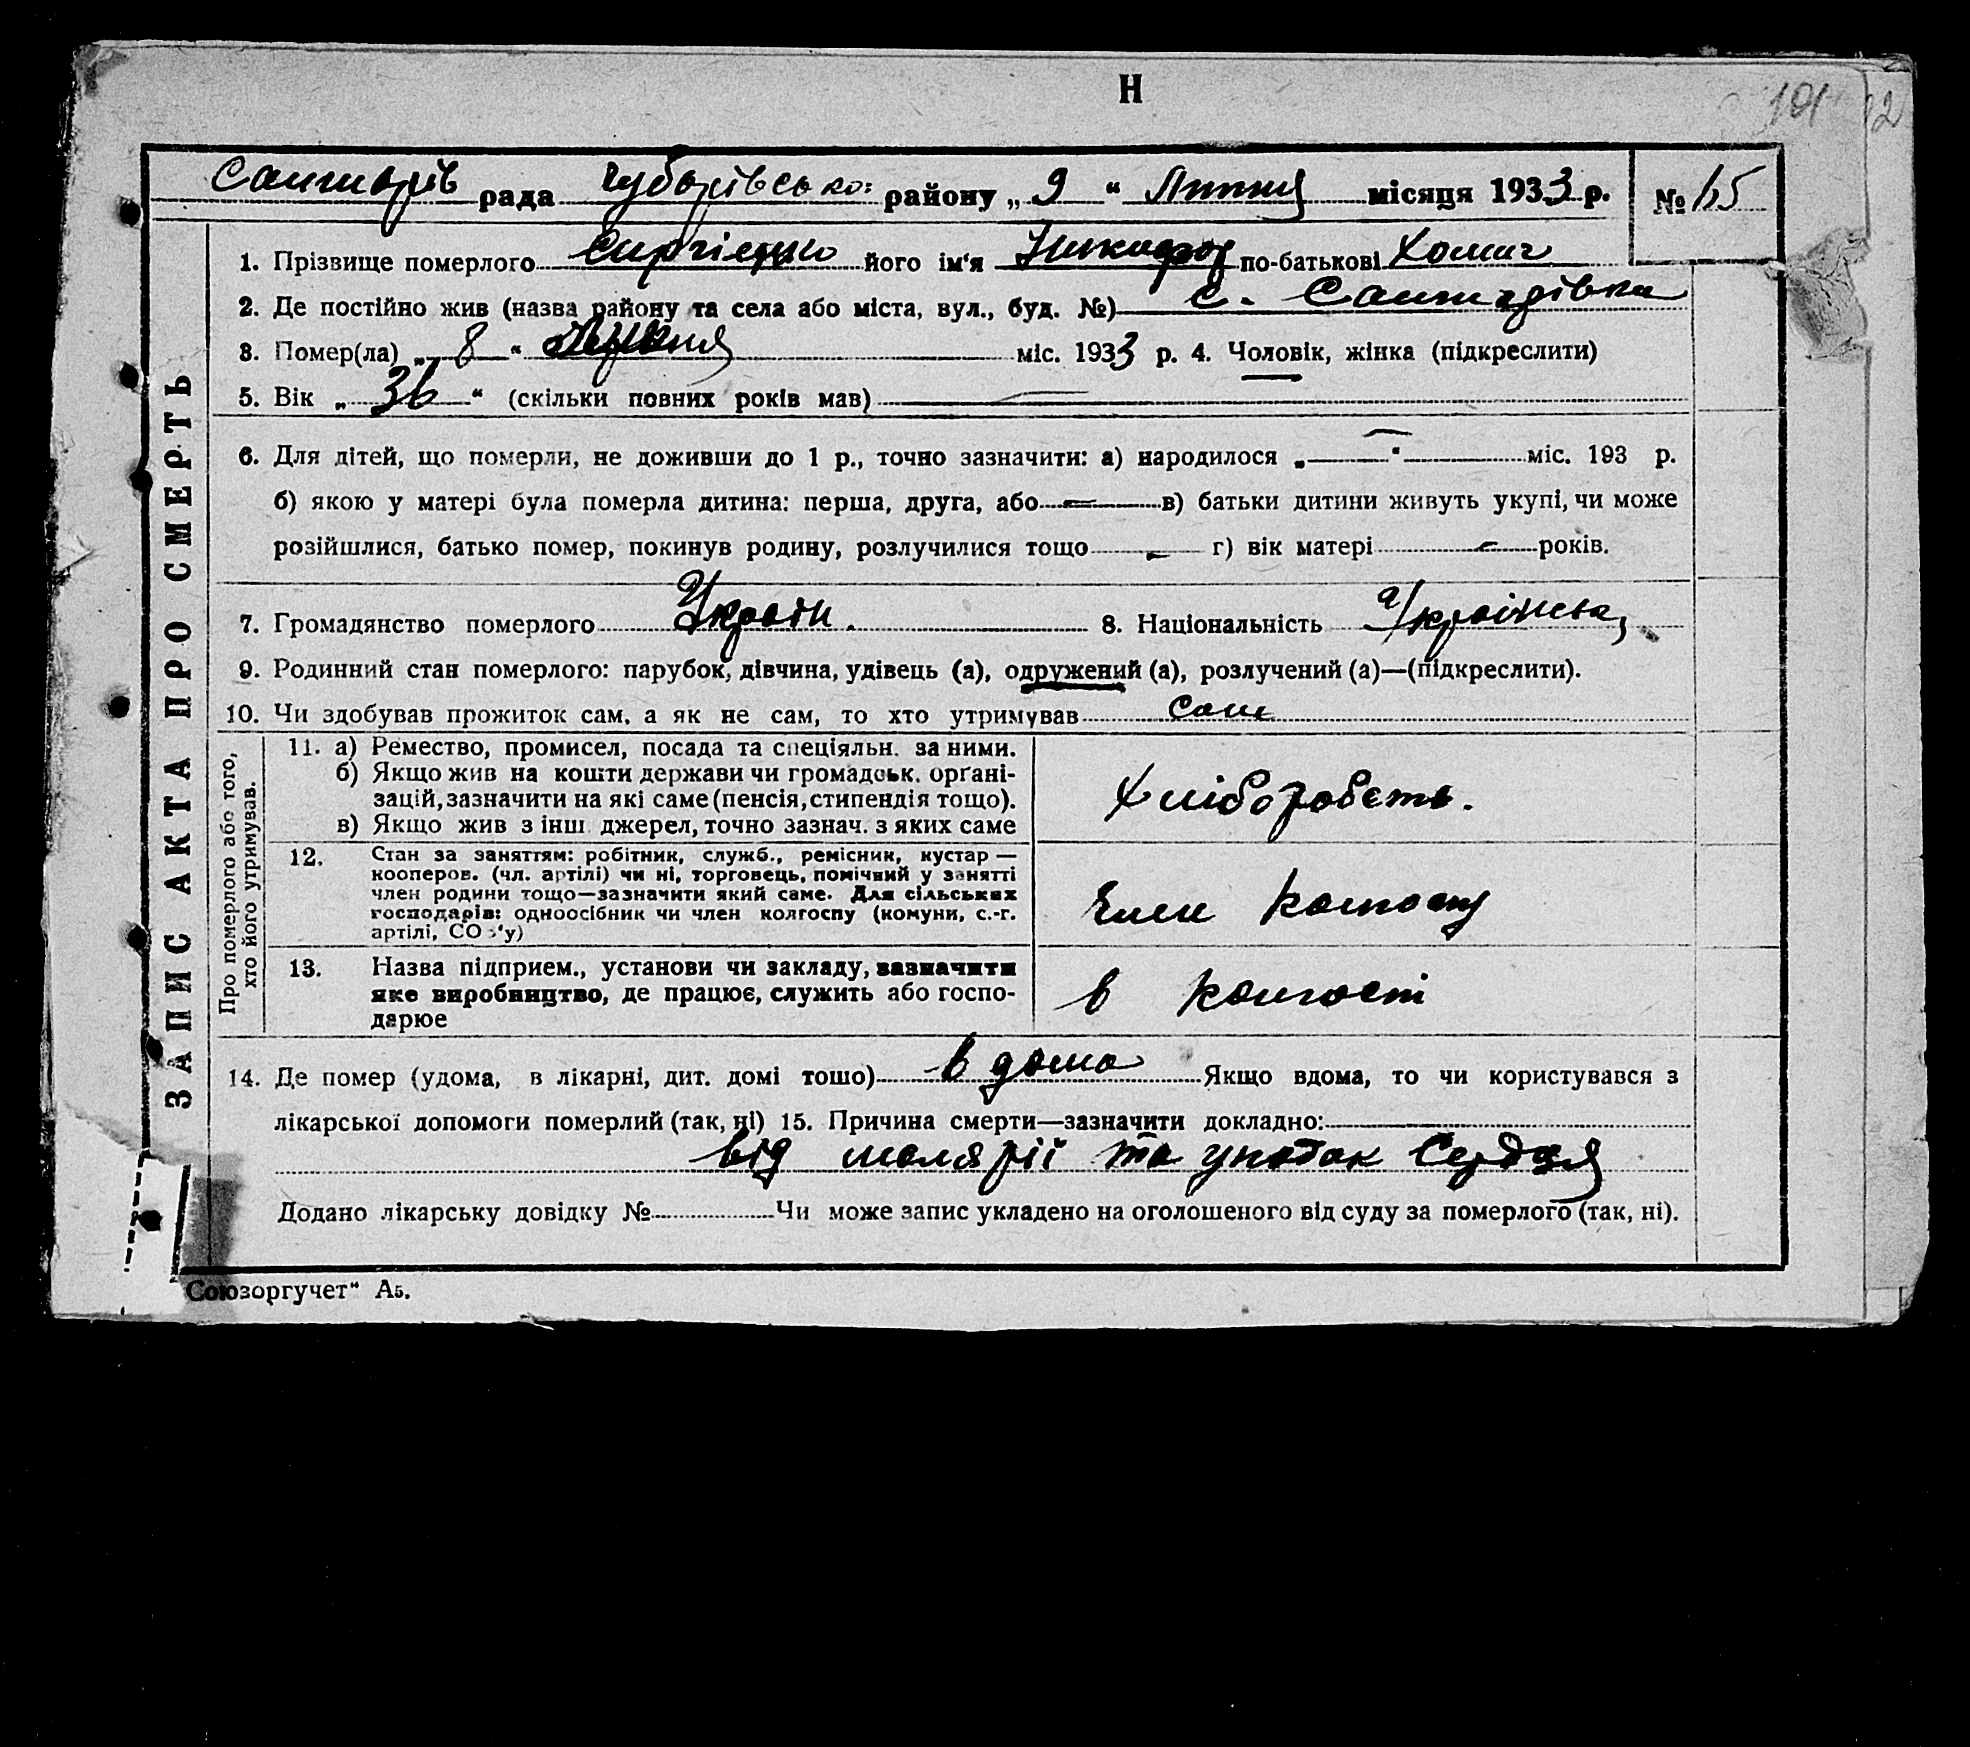 Н
101
рада Чубарівської району „ 9 “ Липня місяця 1933 р. № 65
1. Прізвище померлого його ім'я Никифор по-батькові Хомич
2. Де постійно жив (назва району та села або міста, вул., буд. №) с.
3. Помер(ла) „ 8 “ міс. 1933 р. 4. Чоловік, жінка (підкреслити)
5. Вік „ 36 “ (скільки повних років мав)
6. Для дітей, що померли, не доживши до 1 р., точно зазначити: а) народилося „ “ міс. 193 р.
б) якою у матері була померла дитина: перша, друга, або в) батьки дитини живуть укупі, чи може
розійшлися, батько помер, покинув родину, розлучилися тощо г) вік матері років.
7. Громадянство померлого 8. Національність Українська
9. Родинний стан померлого: парубок, дівчина, удівець (а), одружений (а), розлучений (а)—(підкреслити).
10. Чи здобував прожиток сам, а як не сам, то хто утримував Сам
11. а) Ремество, промисел, посада та спеціяльн. за ними.
б) Якщо жив на кошти держави чи громадськ. організацій, зазначити на які саме (пенсія, стипендія тощо).
в) Якщо жив з інш. джерел, точно зазнач. з яких саме
Хліборобєть.
12. Стан за заняттям: робітник, служб., ремісник, кустар —
кооперов. (чл. артілі) чи ні, торговець, помічний у занятті
член родини тощо—зазначити який саме. Для сільських
господарів: одноосібник чи член колгоспу (комуни, с.-г.
артілі, СОЗ'у)
Член колгоспу
13. Назва підприєм., установи чи закладу, зазначити
яке виробництво, де працює, служить або госпо-
дарює
в колгоспі
Про померлого або того,
хто його утримував.
ЗАПИС АКТА ПРО СМЕРТЬ
14. Де помер (удома, в лікарні, дит. домі тощо) в дома Якщо вдома, то чи користувався з
лікарської допомоги померлий (так, ні) 15. Причина смерти—зазначити докладно:
від малярії та упадак Сердця
Додано лікарську довідку № Чи може запис укладено на оголошеного від суду за померлого (так, ні).
Союзоргучет“ А5.